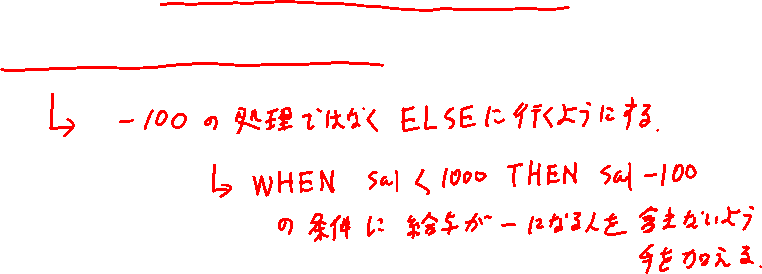 -100の処理ではなくELSEに行くようにする.
WHEN sal < 1000 THEN sal -100
の条件に給与が-になる人を含まないよう
手を加える.